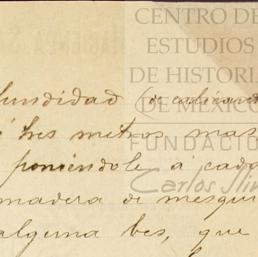 CENTRO DE
ESTUDIOS
DE HISTORI
DE MÉXICO
FUNDACIÓ
Carlos Slim
HACIENDA SA
fundidad (de calicanto
ó tres metros mas
poniéndole á cada
madera de mesqui
alguna bes, que